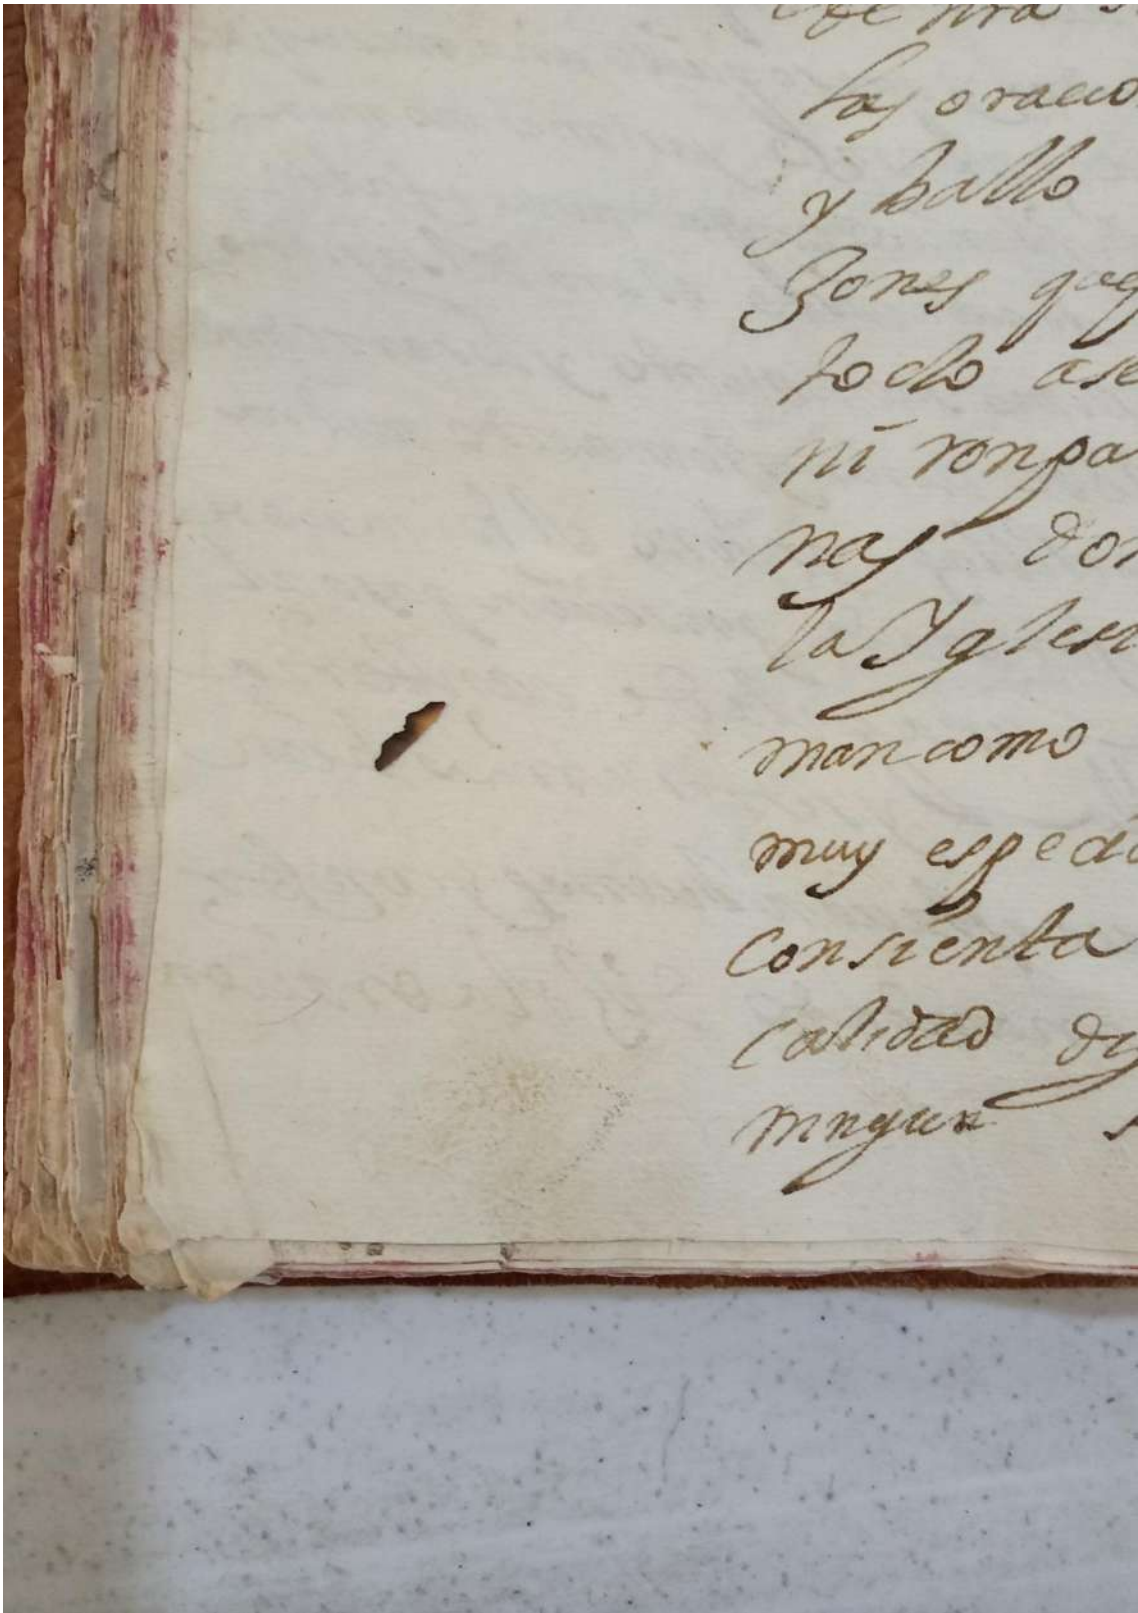 las oracio
y hallo
Zones q̃ en
todo ase
ni ronpa
nas don
la Yglesi
mancomo
muy espedi
consienta
calidad
ningun s